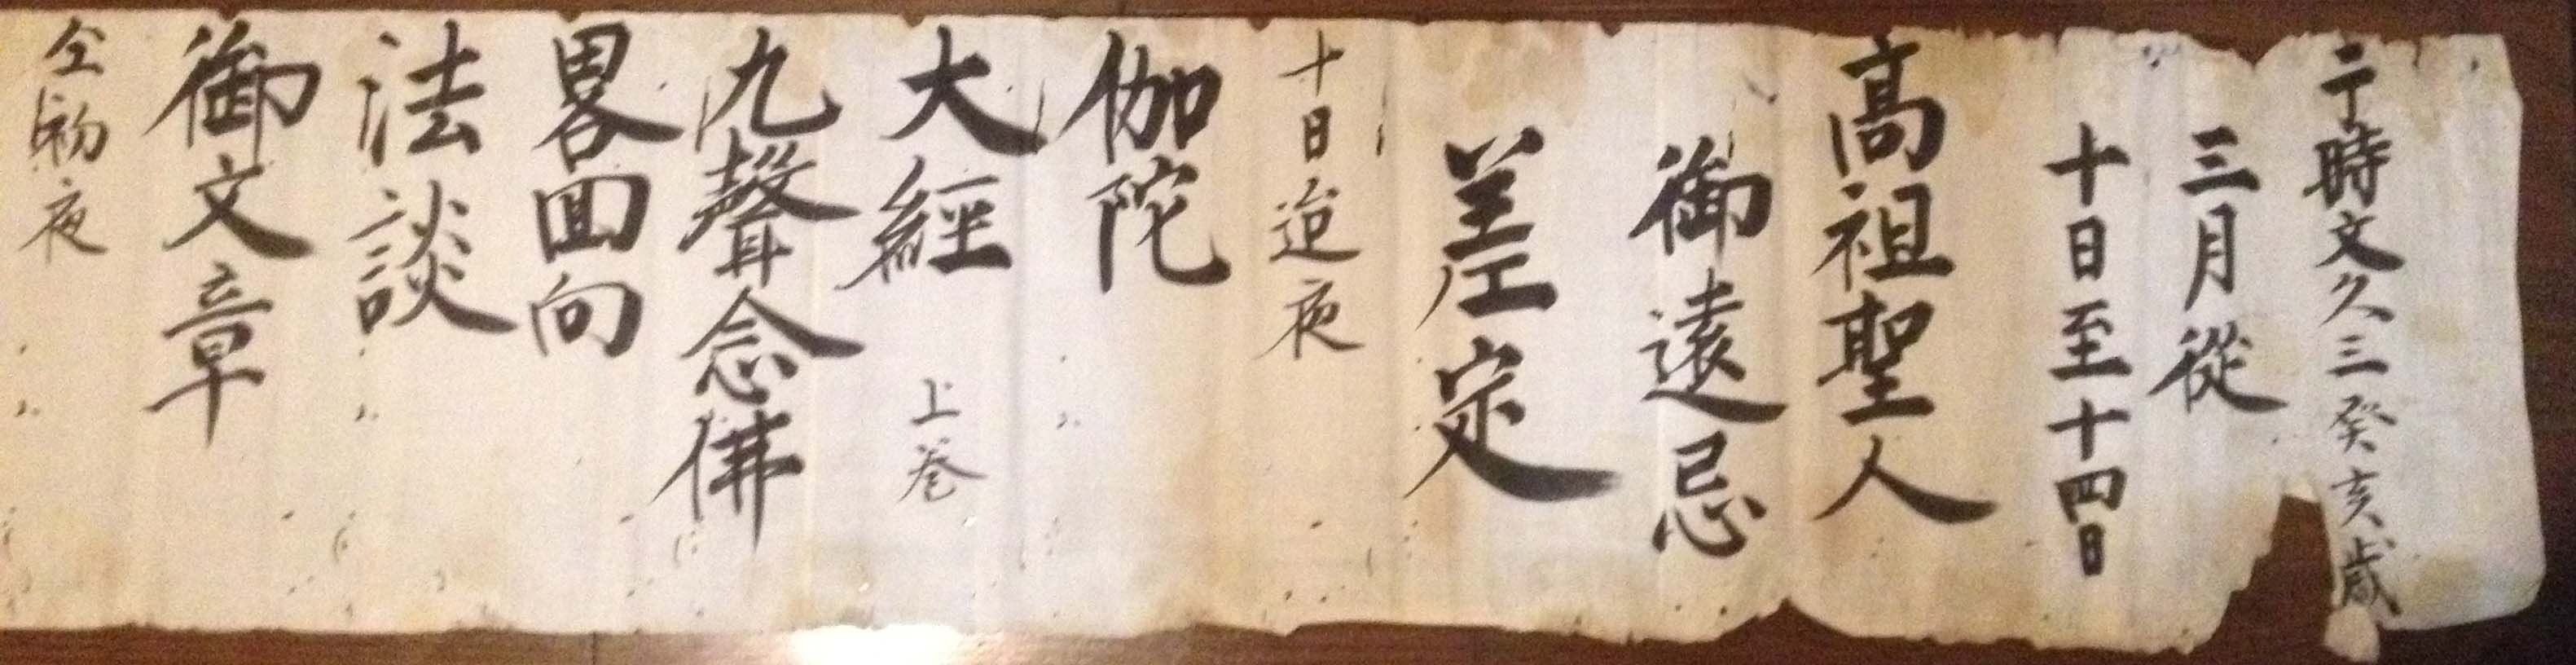 于時文久三癸亥歳
三月従
十日至十四日
髙祖聖人
御遠忌
差定
十日迨夜
伽陀
大經 上巻
九聲念佛
畧回向
法談
御文章
仝初夜